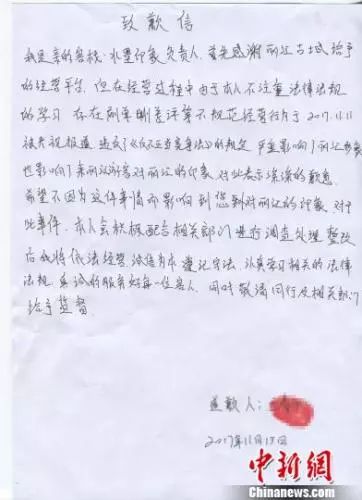 致歉信
我是亲的客栈·水墨印象负责人，首先感谢丽江古城给予
的经营平台，但在经营过程中由于本人不注重法律法规
的学习，存在刷单删差评等不规范经营行为于2017.11.11
被央视报道，违反了《反不正当竞争法》的规定，严重影响了丽江形象
也影响了来丽江游客对丽江的印象，对此表示深深的歉意。
希望不因为这件事情而影响到您们对丽江的印象，对于
此事件，本人会积极配合相关部门进行调查处理，整改
后我将依法经营，诚信为本，遵纪守法，认真学习相关的法律
法规，真诚的服务好每一位客人，同时敬请同行及相关部门
给予监督
道歉人：
2017年11月15日
中新网
Chinanews.com